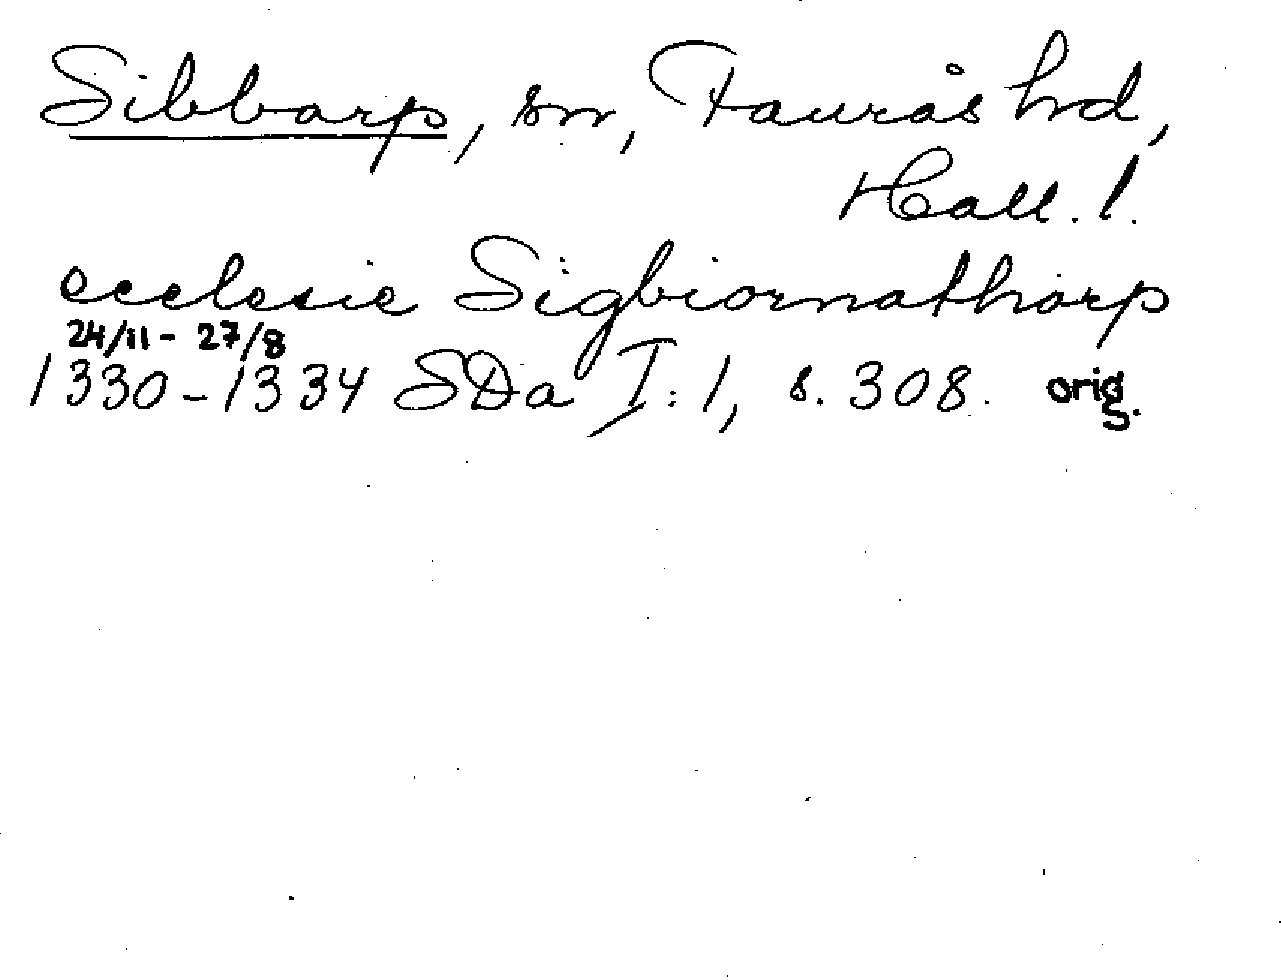 Sibbarp, sn, Faurås hrd,
Hall. l.
ecclesie Sigbiornathorp
24/11 - 27/8
1330-1334 SDa I:1, s. 308. orig.